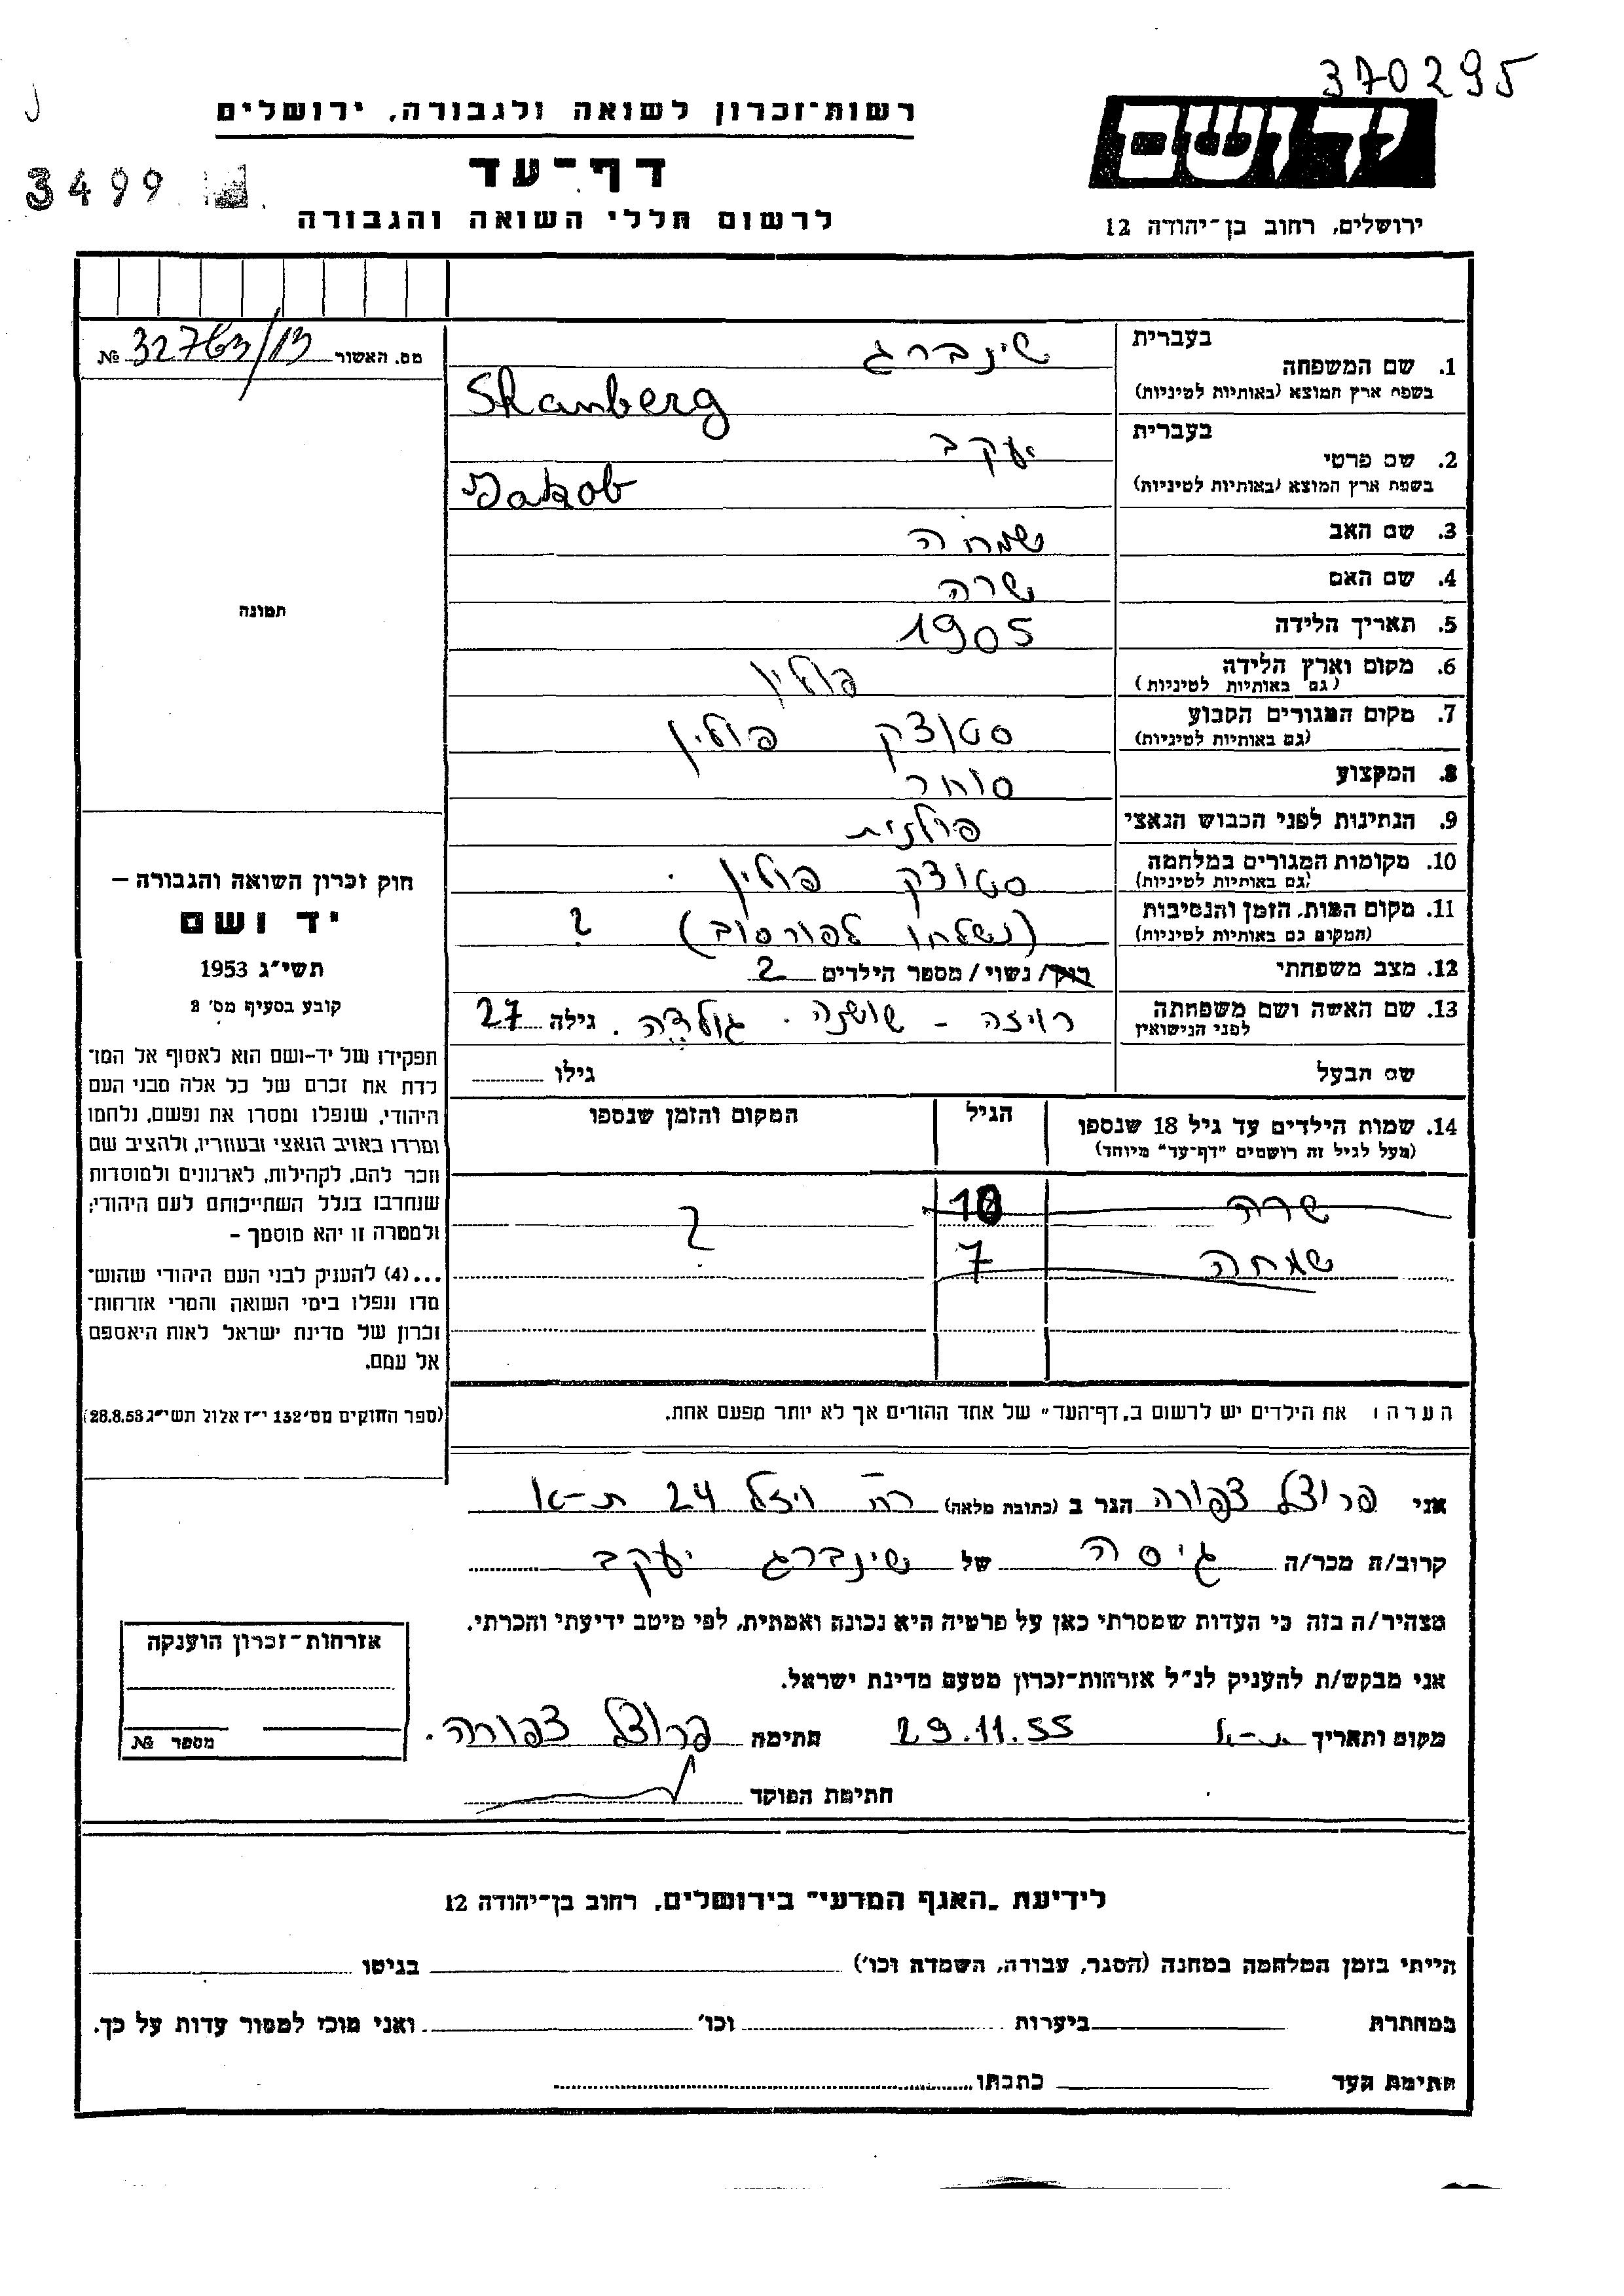 370295
רשות־זכרון לשואה ולגבורה, ירושלים
יד ושם
דף־עד
3499
לרשום חללי השואה והגבורה
ירושלים, רחוב בן־יהודה 12
מס. האשור 32763/13 №
בעברית
1. שם המשפחה שינברג
בשפת ארץ המוצא (באותיות לטיניות) Skanberg
בעברית
2. שם פרטי יעקב
בשפת ארץ המוצא (באותיות לטיניות) Jakob
3. שם האב שמחה
4. שם האם שרה
תמונה
5. תאריך הלידה 1905
6. מקום וארץ הלידה פולין
(גם באותיות לטיניות)
7. מקום המגורים הקבוע סטוצק פולין
(גם באותיות לטיניות)
8. המקצוע סוחר
9. הנתינות לפני הכבוש הנאצי פולנית
10. מקומות המגורים במלחמה סטוצק פולין
(גם באותיות לטיניות)
11. מקום המות, הזמן והנסיבות (נשלחו לפורסוב) ?
(המקום גם באותיות לטיניות)
12. מצב משפחתי רוק/ נשוי/ מספר הילדים 2
13. שם האשה ושם משפחתה רויזה – שושנה. גולדה. גילה 27
לפני הנישואין
שם הבעל גילו
14. שמות הילדים עד גיל 18 שנספו הגיל המקום והזמן שנספו
(מעל לגיל זה רושמים "דף־עד" מיוחד)
שרה 10 ?
שמחה 7
הערה: את הילדים יש לרשום ב„דף־העד" של אחד ההורים אך לא יותר מפעם אחת.
חוק זכרון השואה והגבורה –
יד ושם
תשי"ג 1953
קובע בסעיף מס' 2
תפקידו של יד-ושם הוא לאסוף אל המו־
לדת את זכרם של כל אלה מבני העם
היהודי, שנפלו ומסרו את נפשם, נלחמו
ומרדו באויב הנאצי ובעוזריו, ולהציב שם
וזכר להם, לקהילות, לארגונים ולמוסדות
שנחרבו בגלל השתייכותם לעם היהודי;
ולמטרה זו יהא מוסמך –
...(4) להעניק לבני העם היהודי שהוש־
מדו ונפלו בימי השואה והמרי אזרחות־
זכרון של מדינת ישראל לאות היאספם
אל עמם.
(ספר החוקים מס' 132 י"ז אלול תשי"ג 28.8.53)
אני פרוצל צפורה הגר ב (כתובת מלאה) רח' ויזל 24 ת–א
קרוב/ת מכר/ה גיסה של שינברג יעקב
מצהיר/ה בזה כי העדות שמסרתי כאן על פרטיה היא נכונה ואמתית, לפי מיטב ידיעתי והכרתי.
אני מבקש/ת להעניק לנ"ל אזרחות-זכרון מטעם מדינת ישראל.
מקום ותאריך ת–א 29.11.55 חתימה פרוצל צפורה.
חתימת הפוקד
אזרחות־זכרון הוענקה
מספר №
לידיעת „האגף המדעי" בירושלים, רחוב בן־יהודה 12
הייתי בזמן המלחמה במחנה (הסגר, עבודה, השמדה וכו') בגיטו
במחתרת ביערות וכו' ואני מוכן למסור עדות על כך.
חתימת העד כתבתו